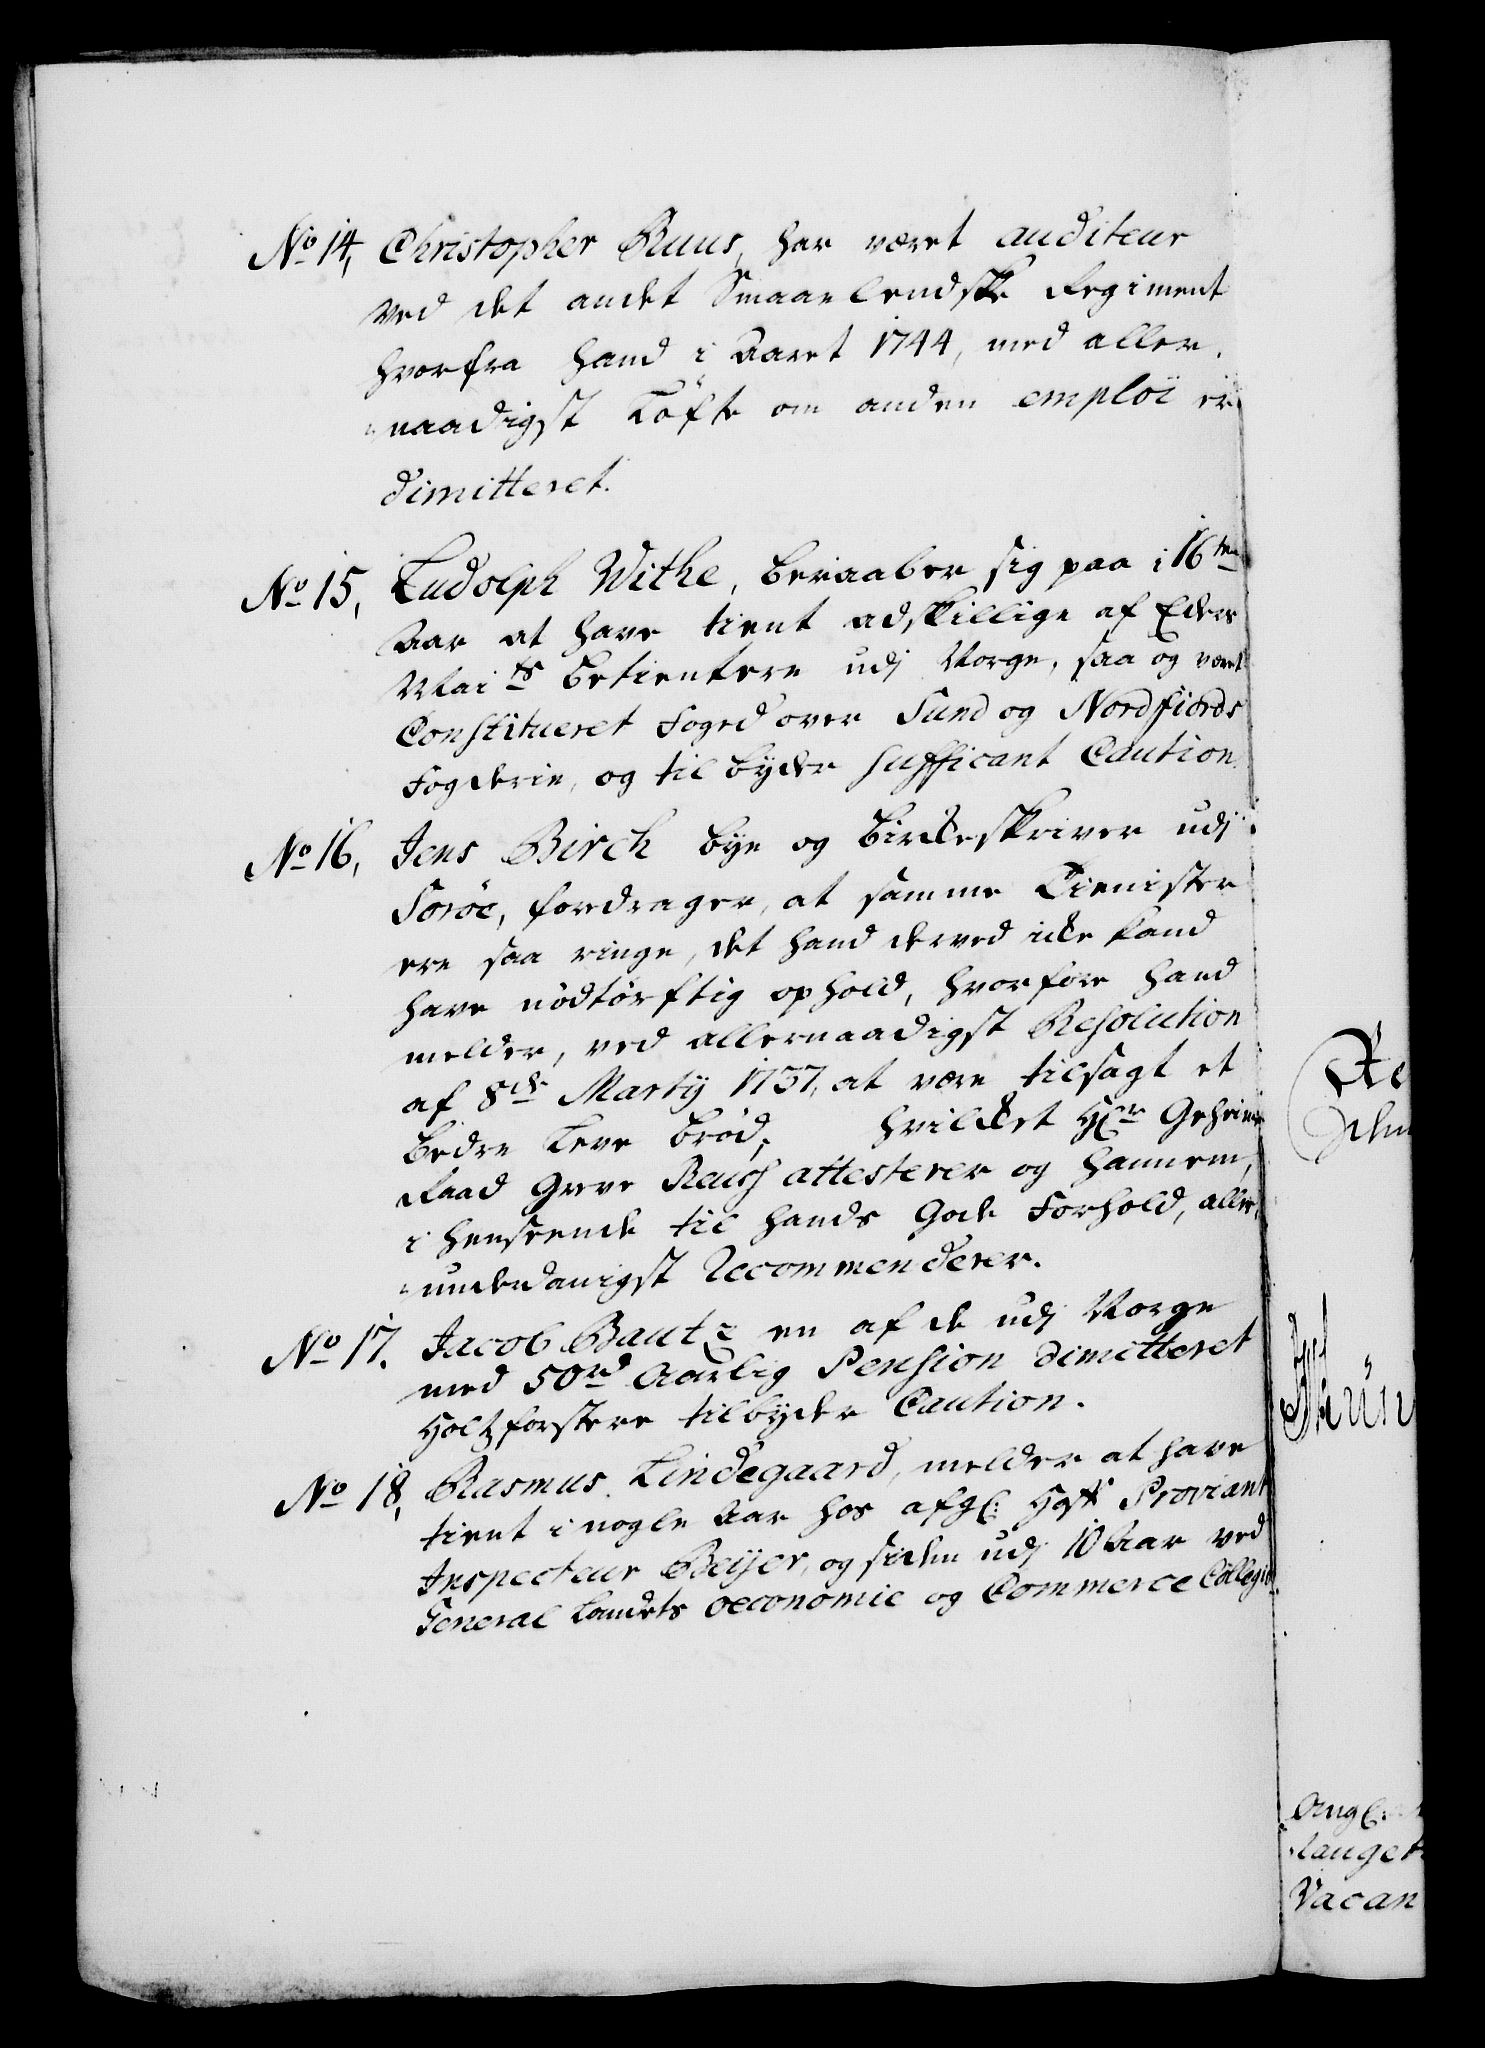 No 14, Christopher Ruus, har været auditeur
ved det andet Smaalendske Regiment
hvorfra hand i Aaret 1744, med aller-
naadigst Løfte om anden emploi er
dimitteret.
No 15, Ludolph Withe, beraaber sig paa i 16ten
Aar at have tient adskillige af Eders
Mai ts Betientere udj Norge, saa og været
Constitueret Foged over Sund og Nordfiords
Fogderie, og tilbyder sufficant Caution
No 16, Jens Birch bye og Birkeskriver udj
Soröe, fordrager, at samme Tienister
ere saa ringe, det hand derved icke kand
have nødtørftig ophold, hvorfore hand
melder, ved allernaadigst Resolution
af 8de Martij 1737, at være tilsagt et
bedre Leve brød, hvilcket Hr Geheime
Raad Greve Reuss attesterer og hannem,
i henseende til hands gode Forhold, aller-
underdanigst Recommenderer.
No 17. Jacob Bautz en af de udj Norge
med 50rd Aarlig Pension dimitteret
Holtzforstere tilbyder Caution.
No 18, Rasmus Lindegaard, melder at have
tient i nogle Aar hos afgl: Hgst Proviant
Inspecteur Beijer, og siden udj 10 Aar ved
General Landets oeconomie og Commerce Collegio